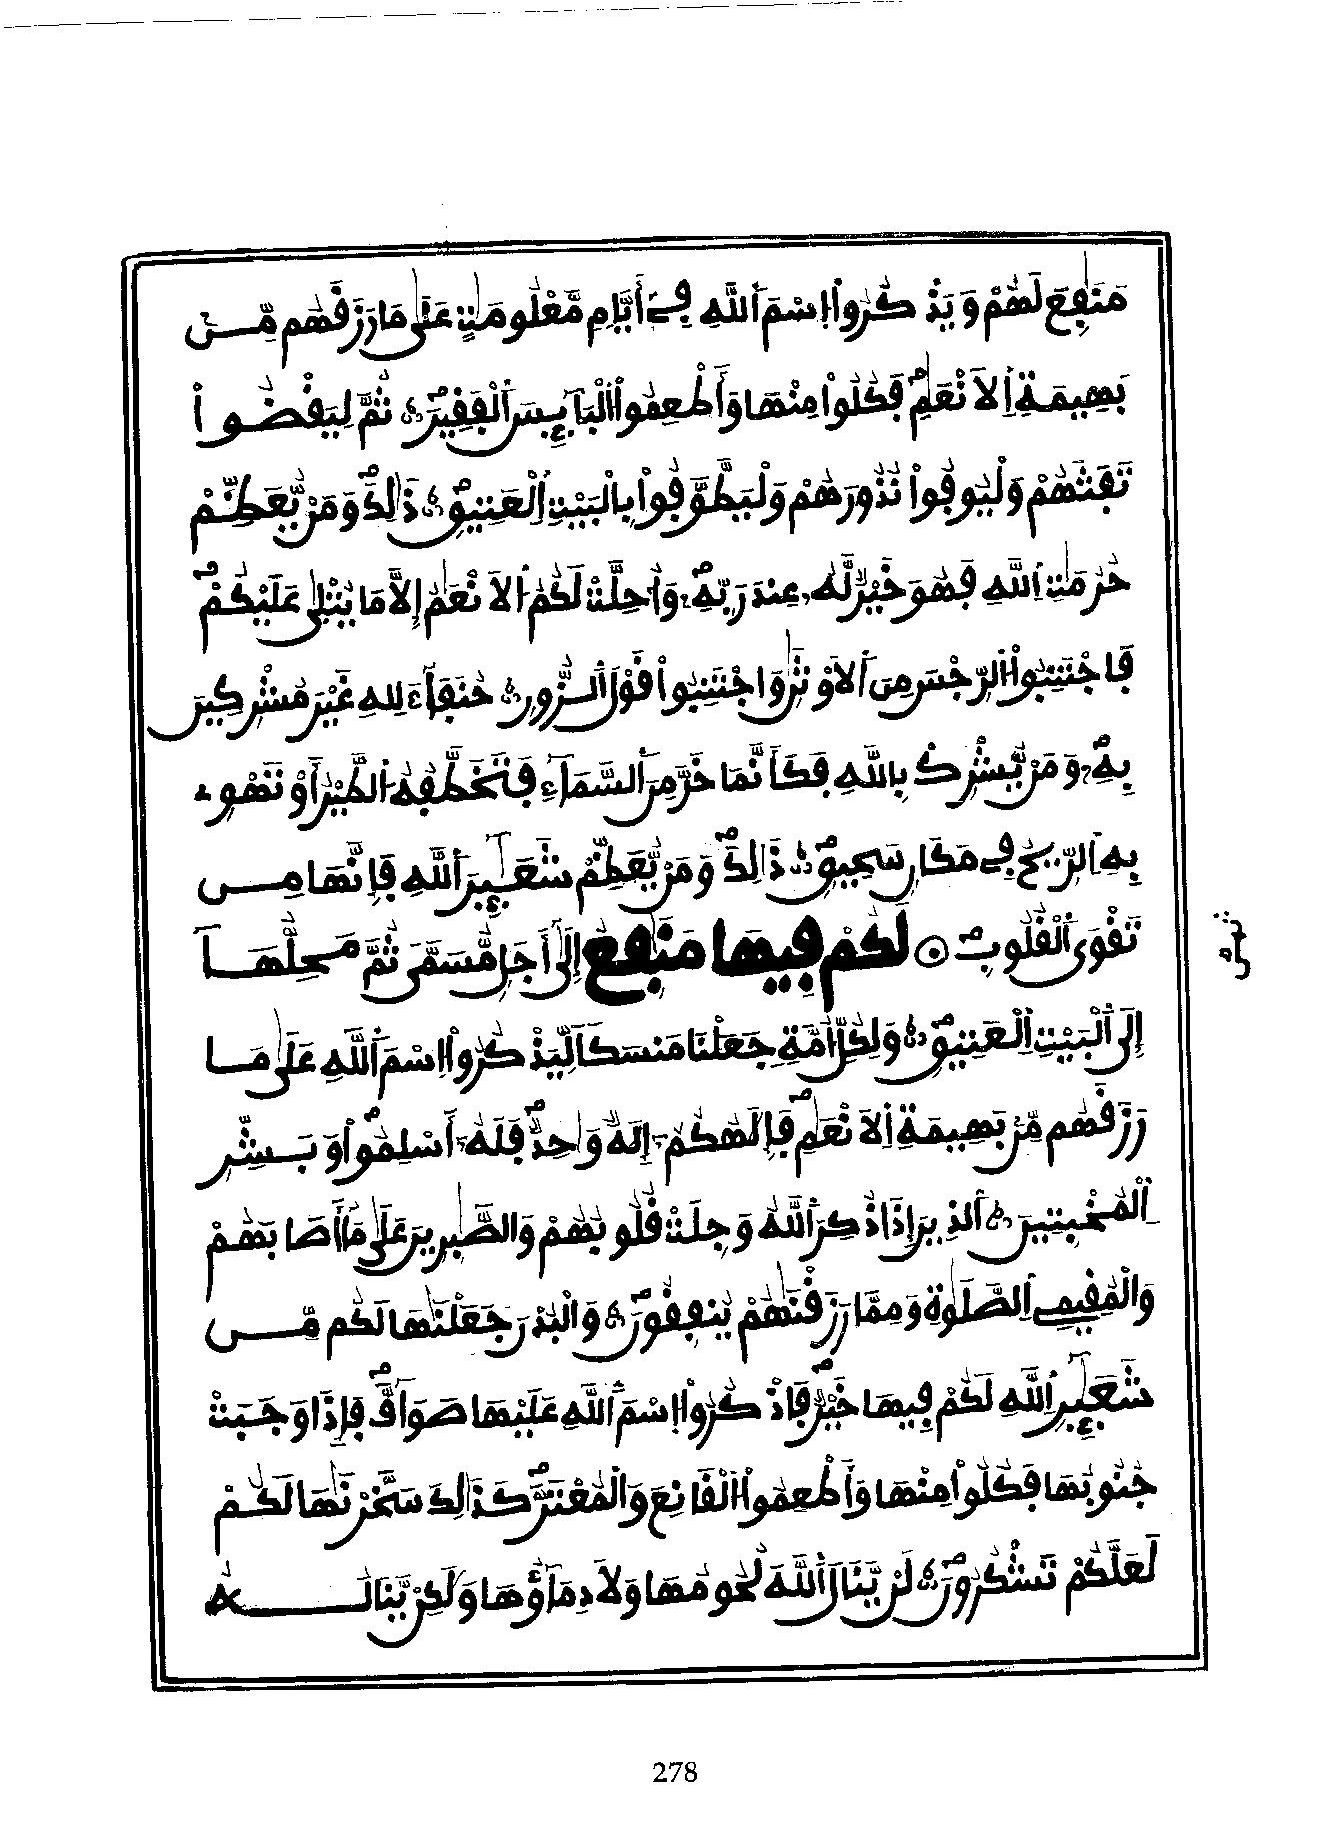 مَنَٰفِعَ لَهُمْ وَيَذْكُرُوا۟ اُ۪سْمَ اَ۬للَّهِ فِےٓ أَيَّامٖ مَّعْلُومَٰتٍ عَلَىٰ مَا رَزَقَهُم مِّنۢ
بَهِيمَةِ اِ۬لَانْعَٰمِۖ فَكُلُوا۟ مِنْهَا وَأَطْعِمُوا۟ اُ۬لْبَآئِسَ اَ۬لْفَقِيرَۖ ثُمَّ لِيَقْضُوا۟
تَفَثَهُمْ وَلْيُوفُوا۟ نُذُورَهُمْ وَلْيَطَّوَّفُوا۟ بِالْبَيْتِ اِ۬لْعَتِيقِۖ ذَٰلِكَۖ وَمَنْ يُّعَظِّمْ
حُرُمَٰتِ اِ۬للَّهِ فَهُوَ خَيْرٌ لَّهُۥ عِندَ رَبِّهِۦۖ وَأُحِلَّتْ لَكُمُ اُ۬لَانْعَٰمُ إِلَّا مَا يُتْلَىٰ عَلَيْكُمْۖ
فَاجْتَنِبُوا۟ اُ۬لرِّجْسَ مِنَ اَ۬لَاوْثَٰنِ وَاجْتَنِبُوا۟ قَوْلَ اَ۬لزُّورِ حُنَفَآءَ لِلهِ غَيْرَ مُشْرِكِينَ
بِهِۦۖ وَمَنْ يُّشْرِكْ بِاللَّهِ فَكَأَنَّمَا خَرَّ مِنَ اَ۬لسَّمَآءِ فَتَخَطَّفُهُ اُ۬لطَّيْرُ أَوْ تَهْوِے
بِهِ اِ۬لرِّيحُ فِے مَكَانٖ سَحِيقٖۖ ذَٰلِكَۖ وَمَنْ يُّعَظِّمْ شَعَٰٓئِرَ اَ۬للَّهِ فَإِنَّهَا مِن
تَقْوَى اَ۬لْقُلُوبِۖ لَكُمْ فِيهَا مَنَٰفِعُ إِلَىٰٓ أَجَلٖ مُّسَمّٗى ثُمَّ مَحِلُّهَآ
إِلَى اَ۬لْبَيْتِ اِ۬لْعَتِيقِۖ وَلِكُلِّ أُمَّةٖ جَعَلْنَا مَنسَكاٗ لِّيَذْكُرُوا۟ اُ۪سْمَ اَ۬للَّهِ عَلَىٰ مَا
رَزَقَهُم مِّنۢ بَهِيمَةِ اِ۬لَانْعَٰمِۖ فَإِلَٰهُكُمُۥٓ إِلَٰهٞ وَٰحِدٞۖ فَلَهُۥٓ أَسْلِمُوا۟ۖ وَبَشِّرِ
اِ۬لْمُخْبِتِينَ اَ۬لذِينَ إِذَا ذُكِرَ اَ۬للَّهُ وَجِلَتْ قُلُوبُهُمْ وَالصَّٰبِرِينَ عَلَىٰ مَآ أَصَابَهُمْ
وَالْمُقِيمِے اِ۬لصَّلَوٰةِ وَمِمَّا رَزَقْنَٰهُمْ يُنفِقُونَۖ وَالْبُدْنَ جَعَلْنَٰهَا لَكُم مِّن
شَعَٰٓئِرِ اِ۬للَّهِ لَكُمْ فِيهَا خَيْرٞۖ فَاذْكُرُوا۟ اُ۪سْمَ اَ۬للَّهِ عَلَيْهَا صَوَآفَّۖ فَإِذَا وَجَبَتْ
جُنُوبُهَا فَكُلُوا۟ مِنْهَا وَأَطْعِمُوا۟ اُ۬لْقَانِعَ وَالْمُعْتَرَّۖ كَذَٰلِكَ سَخَّرْنَٰهَا لَكُمْ
لَعَلَّكُمْ تَشْكُرُونَۖ لَنْ يَّنَالَ اَ۬للَّهَ لُحُومُهَا وَلَا دِمَآؤُهَا وَلَٰكِنْ يَّنَالُهُ
278